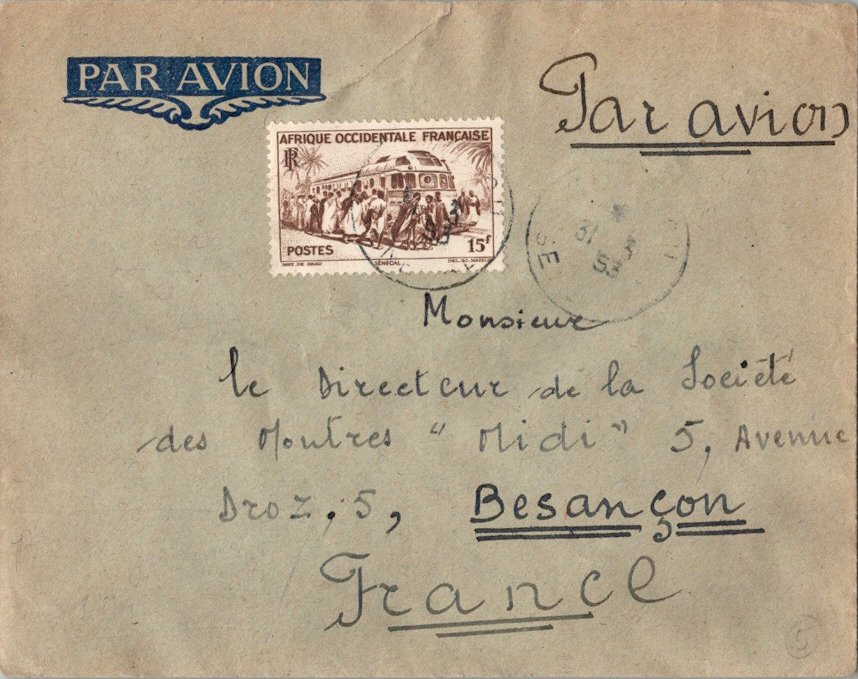 PAR AVION
Par avion
AFRIQUE OCCIDENTALE FRANÇAISE
RF
POSTES
15f
SÉNÉGAL
31
53
Monsieur
le Directeur de la Société
des Montres "Midi" 5, Avenue
Droz, 5, Besançon
France
5